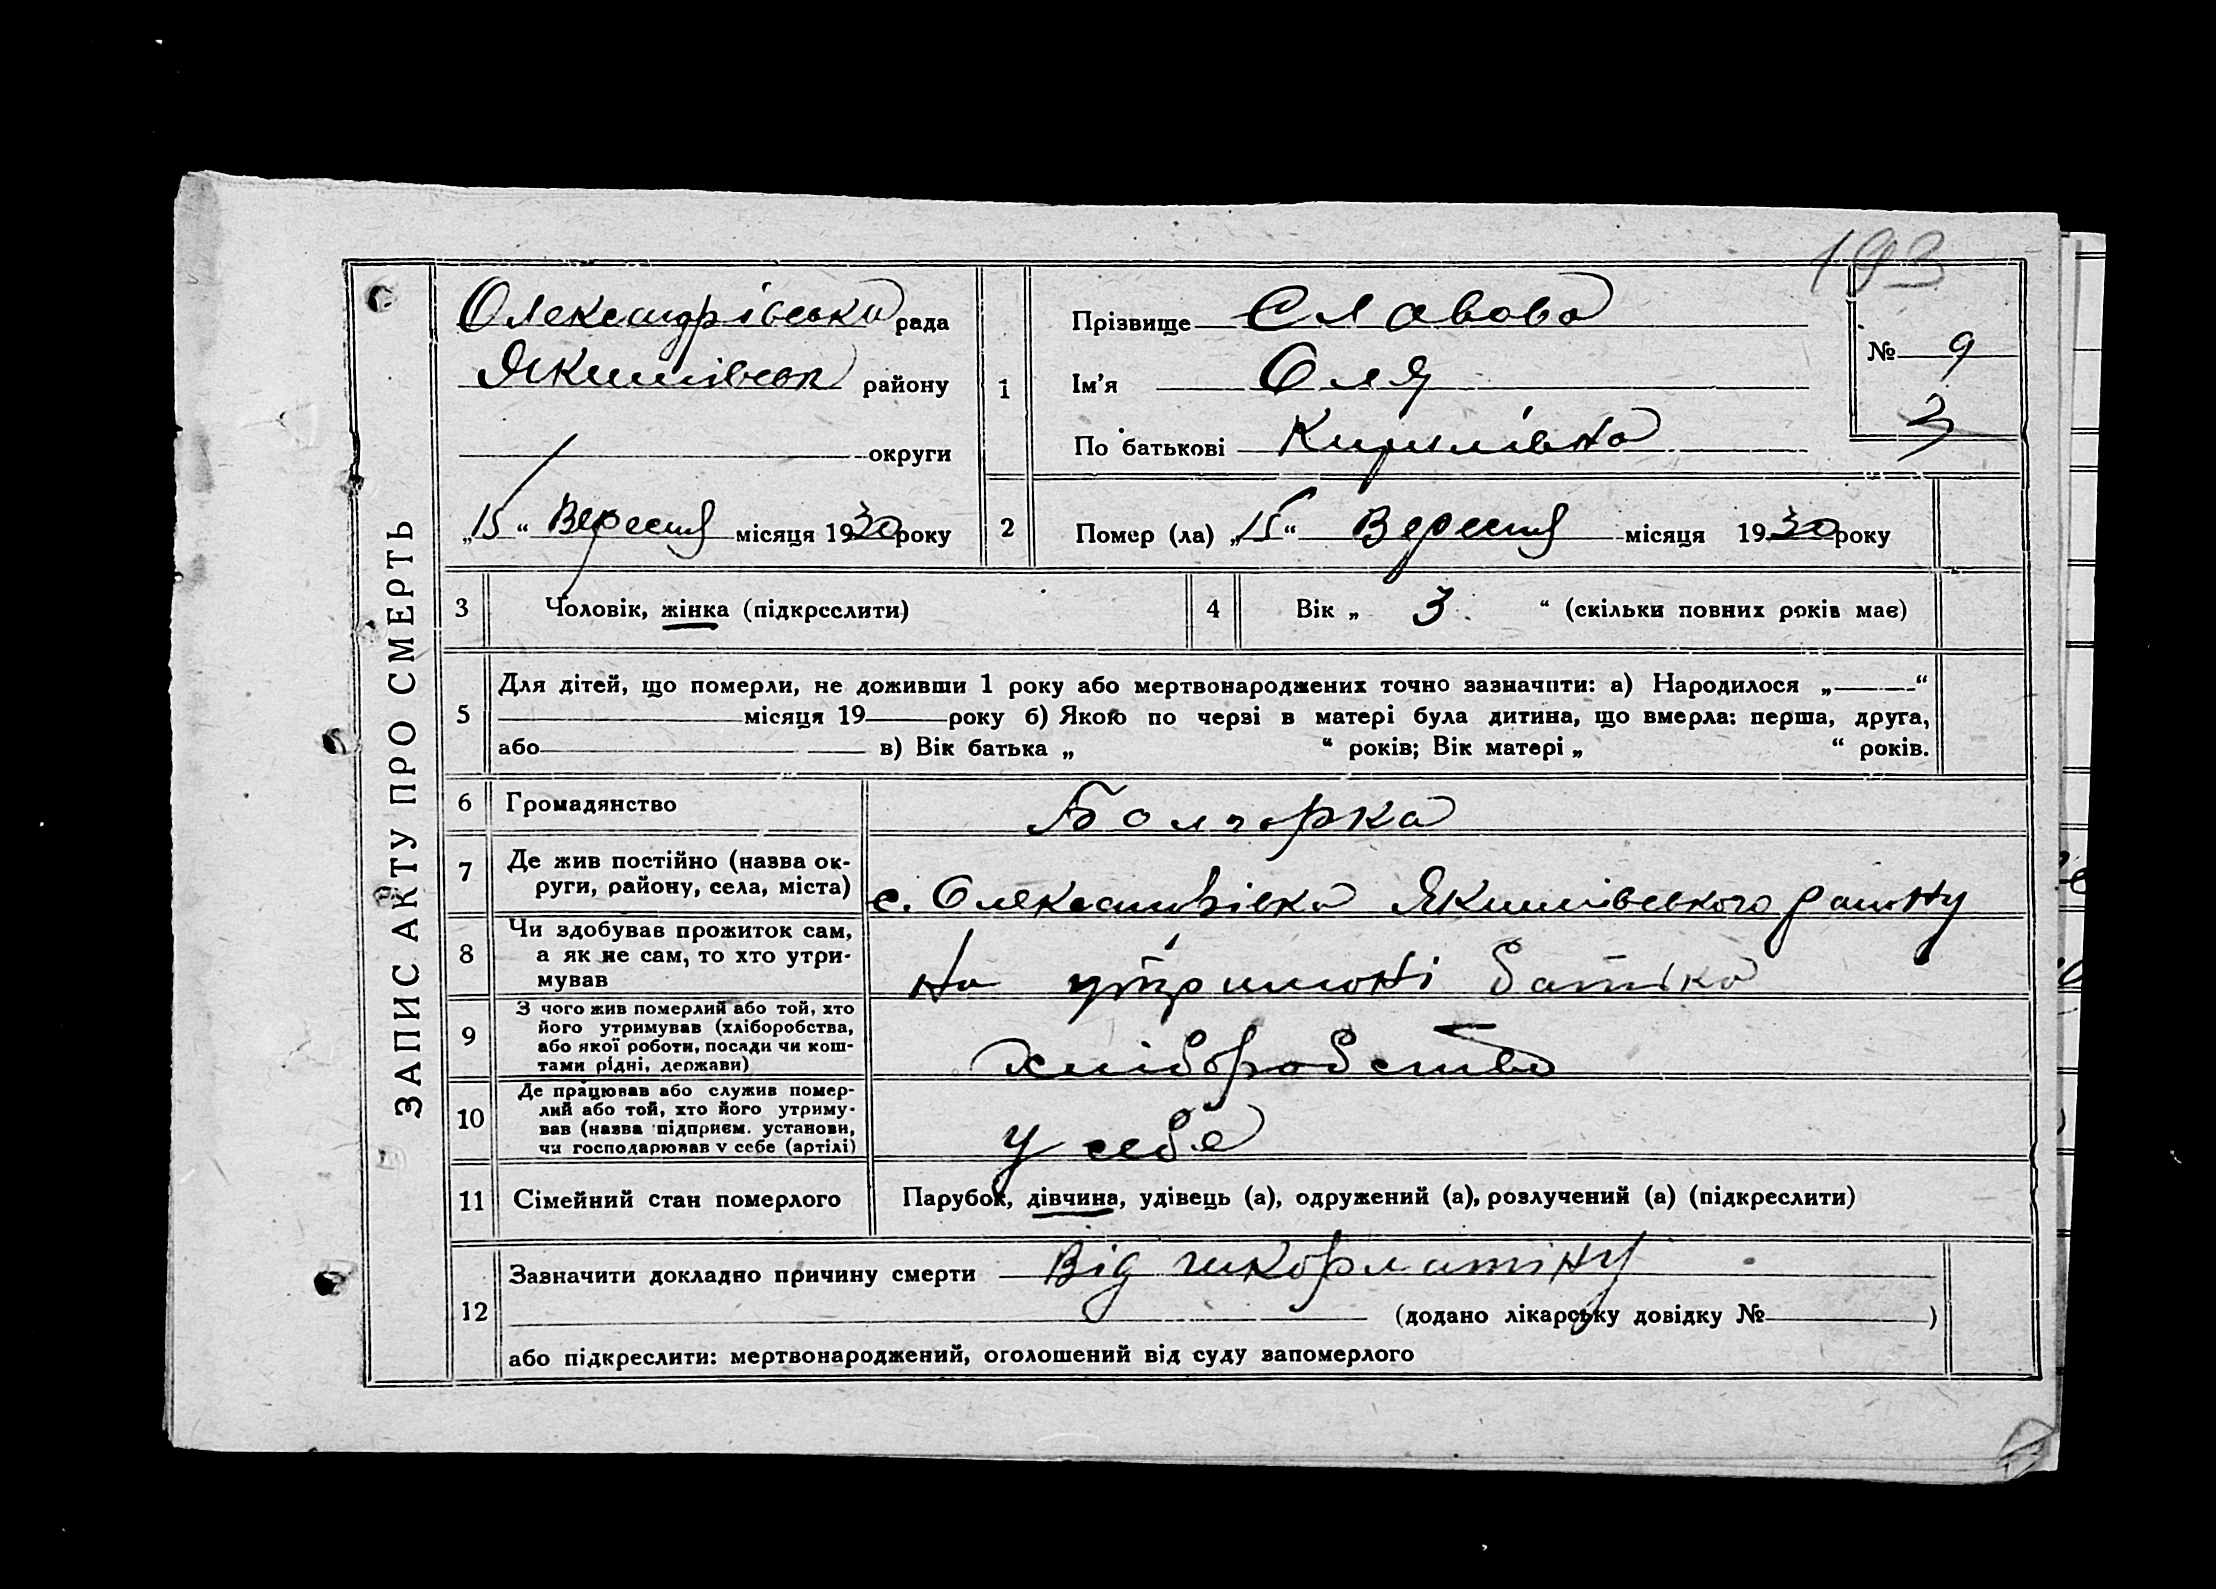 193
ЗАПИС АКТУ ПРО СМЕРТЬ
Олександрівська рада
Якимівськ району
округи
„15“ Вересня місяця 1930 року
1
Прізвище Славова
Ім'я Оля
По батькові Кирилівна
№ 9
3
2
Помер (ла) „15“ Вересня місяця 1930 року
3 Чоловік, жінка (підкреслити)
4 Вік „ 3 “ (скільки повних років має)
5
Для дітей, що померли, не доживши 1 року або мертвонароджених точно зазначити: а) Народилося „ “
місяця 19 року б) Якою по черзі в матері була дитина, що вмерла: перша, друга,
або в) Вік батька „ “ років; Вік матері „ “ років.
6 Громадянство Болгарка
7 Де жив постійно (назва ок-
руги, району, села, міста) с. Олександрівка Якимівського району
8 Чи здобував прожиток сам,
а як не сам, то хто утри-
мував На утриманні батька
9 З чого жив померлий або той, хто
його утримував (хліборобства,
або якої роботи, посади чи кош-
тами рідні, держави) хліборобство
10 Де працював або служив помер-
лий або той, хто його утриму-
вав (назва підприєм. установи,
чи господарював у себе (артілі) у себе
11 Сімейний стан померлого Парубок, дівчина, удівець (а), одружений (а), розлучений (а) (підкреслити)
12
Зазначити докладно причину смерти Від
(додано лікарську довідку № )
або підкреслити: мертвонароджений, оголошений від суду запомерлого